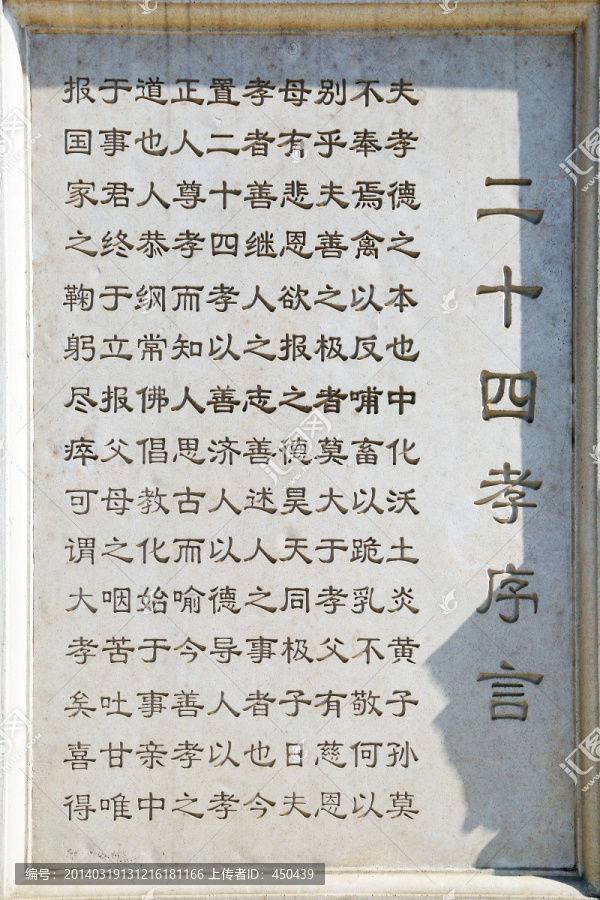 二十四孝序言
夫孝德之本也中化沃土炎黄子孙莫
不奉焉禽以反哺畜以跪乳不敬何以
别乎夫善之极者莫大于孝父有慈恩
母有悲恩欲报之德昊天同极子日夫
孝者善继人之志善述人之事者也今
置二十四孝以善济人以德导人以孝
正人尊孝而知人思古而喻今善孝之
道也人恭纲常佛倡教化始于事亲中
于事君终于立报父母之咽苦吐甘唯
报国家之鞠躬尽瘁可谓大孝矣喜得
编号：20140319131216181166 上传者ID：450439